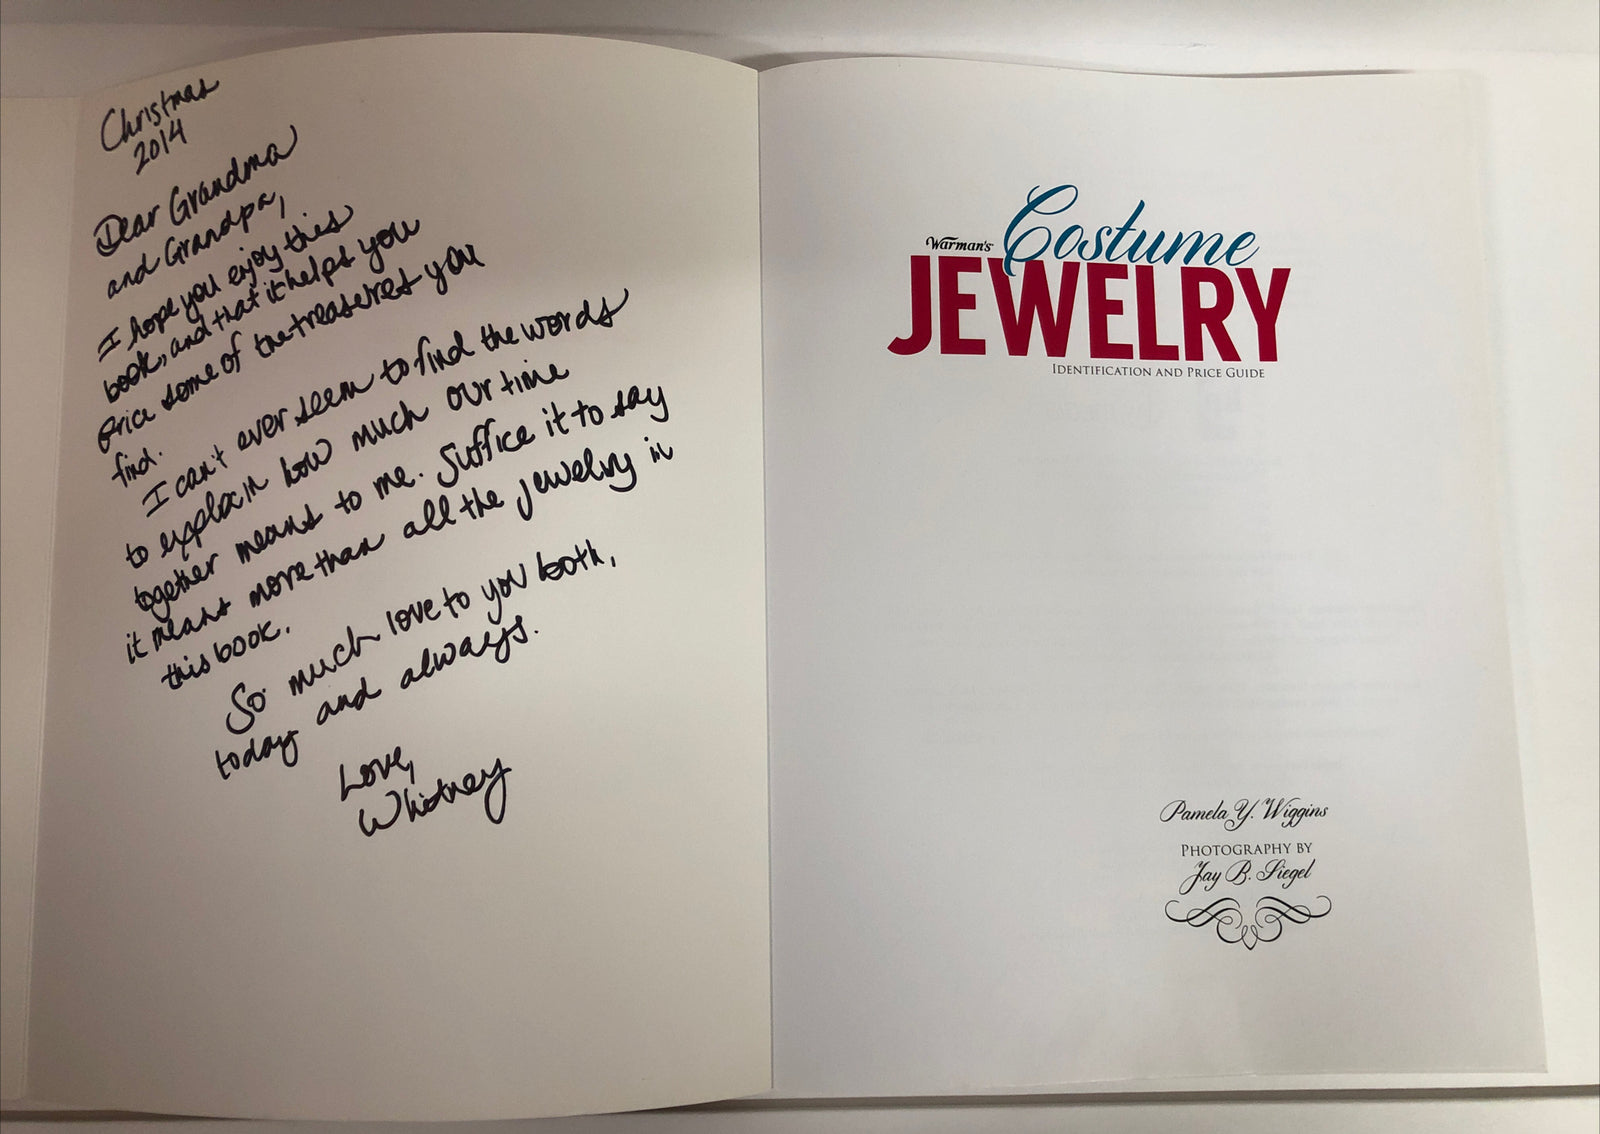 Christmas
2014
Dear Grandma
and Grandpa,
I hope you enjoy this
book, and that it helps you
price some of the treasures you
find.
I can't ever seem to find the words
to explain how much our time
together means to me. Suffice it to say
it means more than all the jewelry in
this book.
So much love to you both,
today and always.
Love,
Whitney
Warman's Costume
JEWELRY
IDENTIFICATION AND PRICE GUIDE
Pamela Y. Wiggins
PHOTOGRAPHY BY
Jay B. Siegel